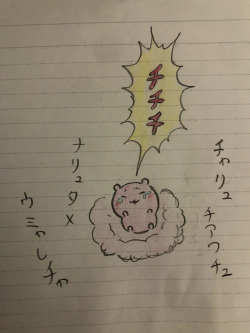 チチチ
チャリュ
チアウチュ
ナリュタメ
ウミャレチャ